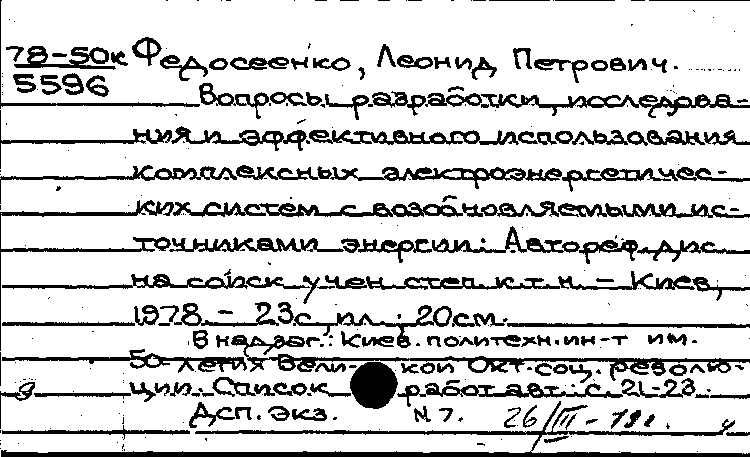 78-50к Федосеенко, Леонид Петрович.
5596
Вопросы разработки, исследова-
ния и эффективного использования
комплексных электроэнергетичес-
ких систем с возобновляемыми ис-
точниками энергии: Автореф. дис.
на соиск. учен. степ. к.т.н. - Киев,
1978. - 23с, ил.; 20см.
В надзаг.: Киев. политехн. ин-т им.
50-летия Вели- кой Окт. соц. револю-
ции. Список работ авт.: с. 21-23.
Дсп. экз. N 7. 26/III-